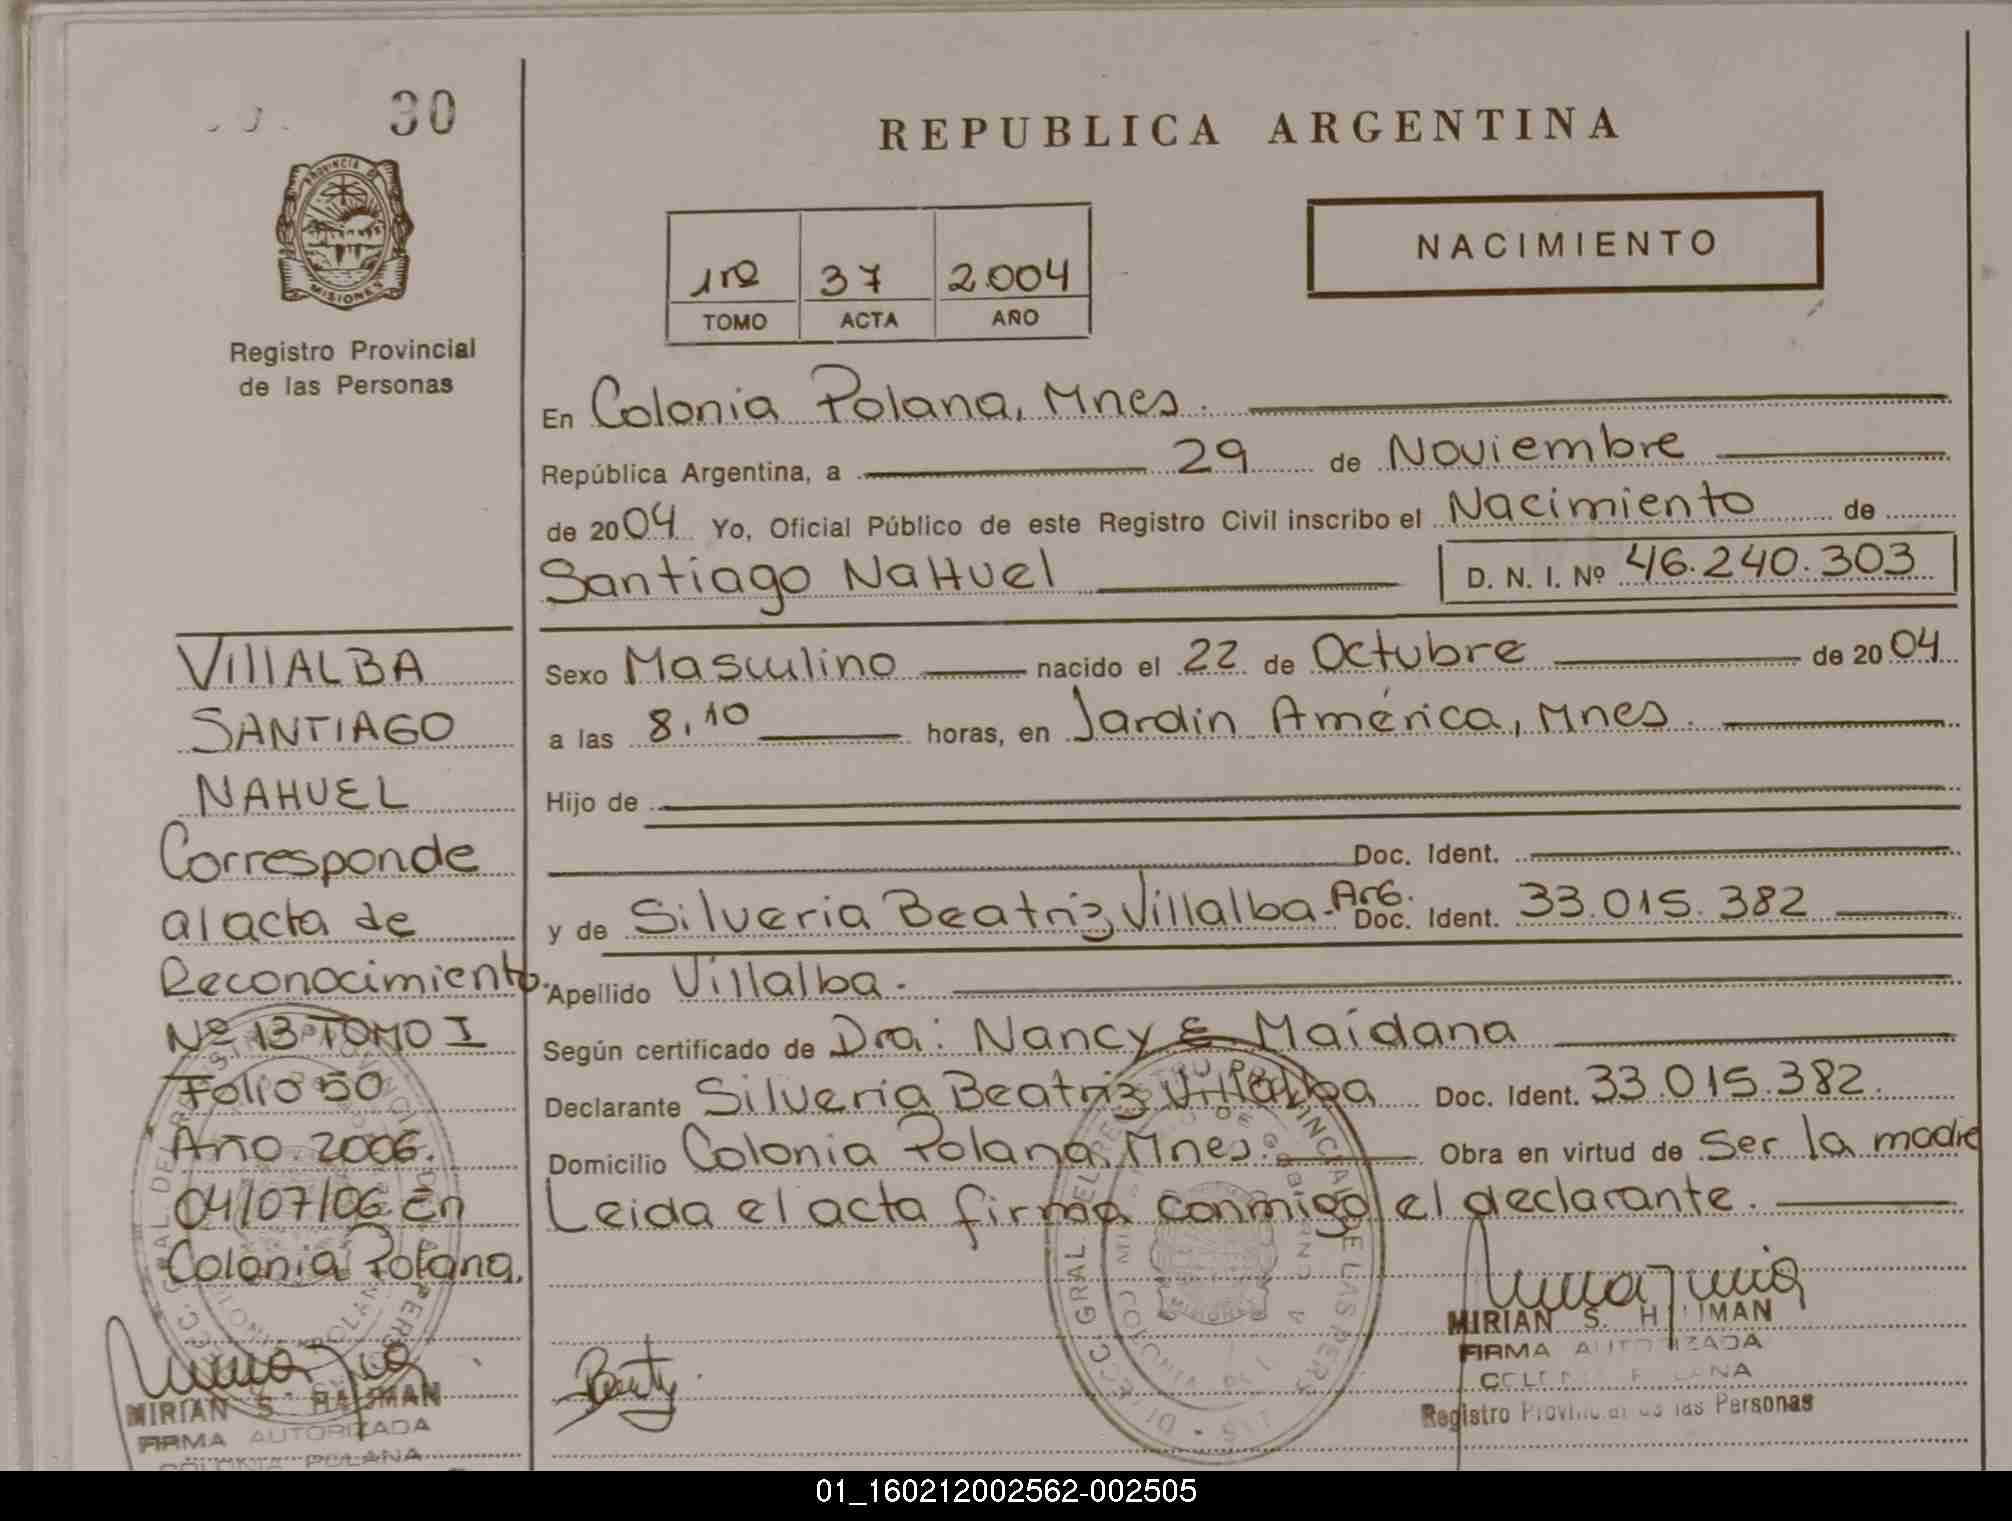 30
PROVINCIA DE
MISIONES
Registro Provincial
de las Personas
REPUBLICA ARGENTINA
NACIMIENTO
1ro 37 2.004
TOMO ACTA AÑO
En Colonia Polana, Mnes.
República Argentina, a 29 de Noviembre
de 2004 Yo, Oficial Público de este Registro Civil inscribo el Nacimiento de
Santiago NaHuel D. N. I. Nº 46.240.303
Sexo Masculino nacido el 22 de Octubre de 2004
a las 8,10 horas, en Jardin América, Mnes.
Hijo de
Doc. Ident.
y de Silveria Beatriz Villalba-ARG. Doc. Ident. 33.015.382
Apellido Villalba.
Según certificado de Dra: Nancy E Maidana
Declarante Silveria Beatriz Villalba Doc. Ident. 33.015.382.
Domicilio Colonia Polana, Mnes. Obra en virtud de Ser la madre
Leida el acta firma conmigo el declarante.
MIRIAN S. H
FIRMA AUTORIZADA
COLONIA POLANA
Registro Provincial de las Personas
VIllALBA
SANTIAGO
NAHUEL
Corresponde
al acta de
Reconocimiento.
Nº 13 TOMO I
Folio 50
Año 2006.
04/07/06 En
Colonia Polana.
MIRIAN S.
FIRMA AUTORIZADA
COLONIA POLANA
01_160212002562-002505